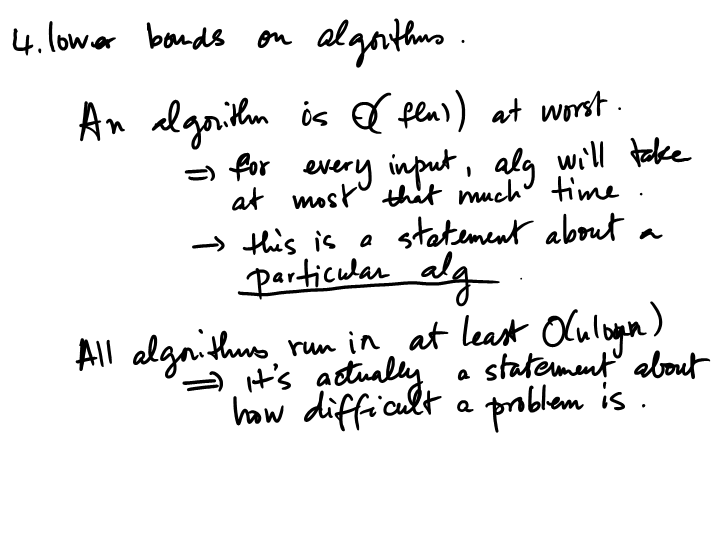 4. lower bonds on algorithms.
An algorithm is Θ(f(n)) at worst.
⇒ for every input, alg will take
at most that much time.
→ this is a statement about a
particular alg.
All algorithms run in at least O(nlogn)
⇒ it's actually a statement about
how difficult a problem is.